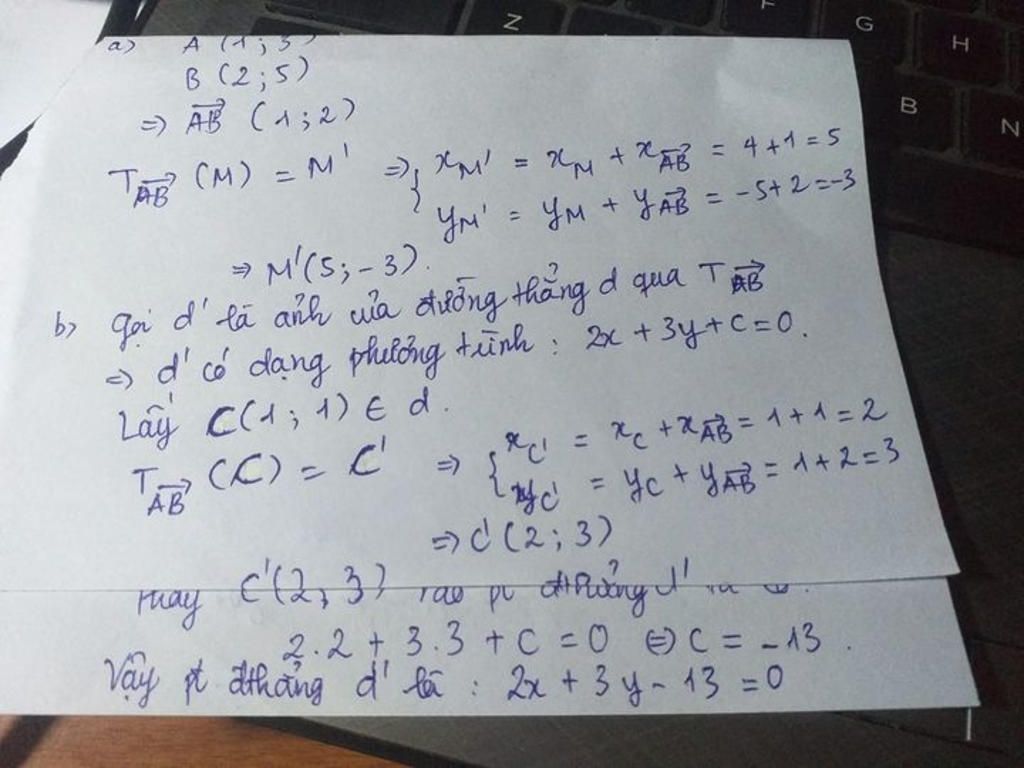 a) A (1; 3)
B (2; 5)
=> AB (1; 2)
T AB (M) = M' => { xM' = xM + xAB = 4 + 1 = 5
yM' = yM + yAB = -5 + 2 = -3
=> M'(5; -3).
b) Gọi d' là ảnh của đường thẳng d qua T AB
=> d' có dạng phương trình : 2x + 3y + c = 0.
Lấy C(1; 1) ∈ d.
T AB (C) = C' => { xC' = xC + xAB = 1 + 1 = 2
yC' = yC + yAB = 1 + 2 = 3
=> C'(2; 3)
Thay C'(2; 3) vào pt đthẳng d' ta có:
2.2 + 3.3 + c = 0 <=> c = -13.
Vậy pt đthẳng d' là : 2x + 3y - 13 = 0
Z
F
G
H
B
N